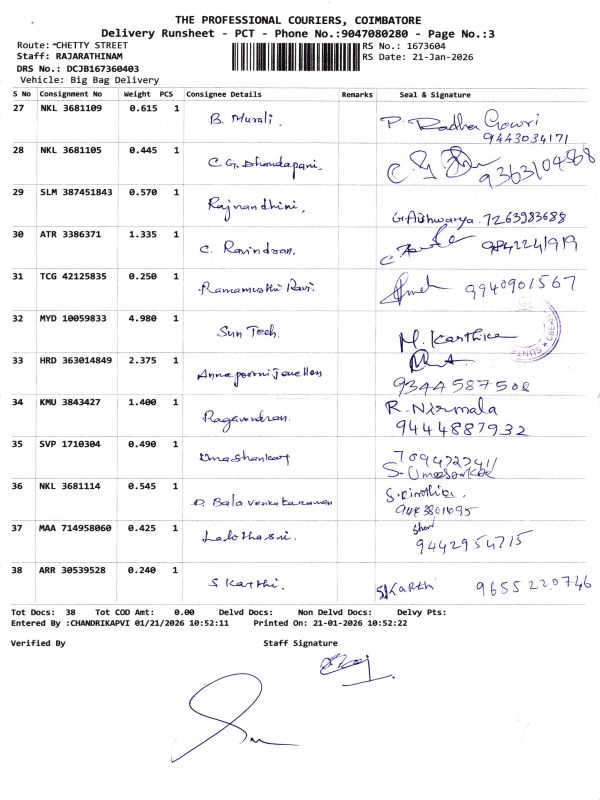 THE PROFESSIONAL COURIERS, COIMBATORE
Delivery Runsheet - PCT - Phone No.:9047080280 - Page No.:3
Route: CHETTY STREET
RS No.: 1673604
Staff: RAJARATHINAM
RS Date: 21-Jan-2026
DRS No.: DCJB167360403
Vehicle: Big Bag Delivery
S No Consignment No Weight PCS Consignee Details Remarks Seal & Signature
27 NKL 3681109 0.615 1 B. Murali. P. Radha Gowri
9443034171
28 NKL 3681105 0.445 1 C.G. Dhandapani.
29 SLM 387451843 0.570 1 Rajnandhini. G. Aishwarya. 7263983688
30 ATR 3386371 1.335 1 C. Ravindran.
31 TCG 42125835 0.250 1 Ramamurthi Ravi. 9940901567
32 MYD 10059833 4.980 1 Sun Tech. M. Karthica
33 HRD 363014849 2.375 1 Annapoorni Jewellers
9344587508
34 KMU 3843427 1.400 1 Ragavendran. R. Nirmala
9444887932
35 SVP 1710304 0.490 1 Umashankar
36 NKL 3681114 0.545 1 D. Bala Venkataraman
37 MAA 714958060 0.425 1
9442954715
38 ARR 30539528 0.240 1 S Karthi. S. Karthi 9655220746
Tot Docs: 38 Tot COD Amt: 0.00 Delvd Docs: Non Delvd Docs: Delvy Pts:
Entered By :CHANDRIKAPVI 01/21/2026 10:52:11 Printed On: 21-01-2026 10:52:22
Verified By Staff Signature